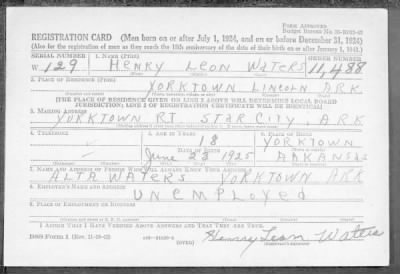 FORM APPROVED
REGISTRATION CARD (Men born on or after July 1, 1924, and on or before December 31, 1924)
(Also for the registration of men as they reach the 18th anniversary of the date of their birth on or after January 1, 1943.)
SERIAL NUMBER 1. NAME (Print) ORDER NUMBER
W 129 HENRY LEON WATERS 11,488
2. PLACE OF RESIDENCE (Print)
YORKTOWN LINCOLN ARK
[THE PLACE OF RESIDENCE GIVEN ON LINE 2 ABOVE WILL DETERMINE LOCAL BOARD
JURISDICTION; LINE 2 OF REGISTRATION CERTIFICATE WILL BE IDENTICAL]
3. MAILING ADDRESS
YORKTOWN RT STAR CITY ARK
4. TELEPHONE 5. AGE IN YEARS 6. PLACE OF BIRTH
18 YORKTOWN
DATE OF BIRTH
June 23 1925 ARKANSAS
7. NAME AND ADDRESS OF PERSON WHO WILL ALWAYS KNOW YOUR ADDRESS
ALTA WATERS YORKTOWN ARK
8. EMPLOYER'S NAME AND ADDRESS
UNEMPLOYED
9. PLACE OF EMPLOYMENT OR BUSINESS
I AFFIRM THAT I HAVE VERIFIED ABOVE ANSWERS AND THAT THEY ARE TRUE.
(OVER) Henry Leon Waters